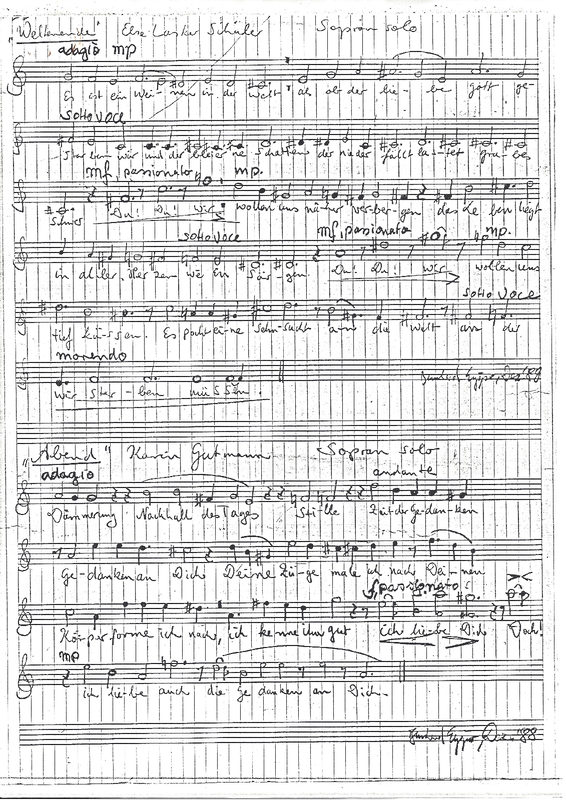 "Weltenende" Else Lasker Schüler Sopran solo
adagio mp
Es ist ein Wei-nen in der Welt als ob der lie-be Gott ge-
sotto voce
stor ben wär und der bleier ne Schatten der nieder fällt la-stet gra-bes
mf, passionato mp.
schwer Du! Du! wir wollen uns nä-her ver-ber-gen das Le ben liegt
sotto voce mf, pasionato mp.
in al ler Her zen wie in Sär-gen. Du! Du! wir wollen uns
sotto voce
tief küs-sen. Es pocht ei-ne Sehn-sucht an die Welt an der
morendo
wir ster-ben müssen.
"Abend" Karin Gutmann Sopran solo
adagio andante
Dämmerung Nachhall des Tages Stil-le Zeit der Ge-dan-ken
Ge-danken an Dich Deine Zü-ge male ich nach Dei-nen
f, passionato
Körper forme ich nach, ich kenne ihn gut ich lie-be Dich Doch!
mp
ich lie-be auch die Ge danken an Dich.